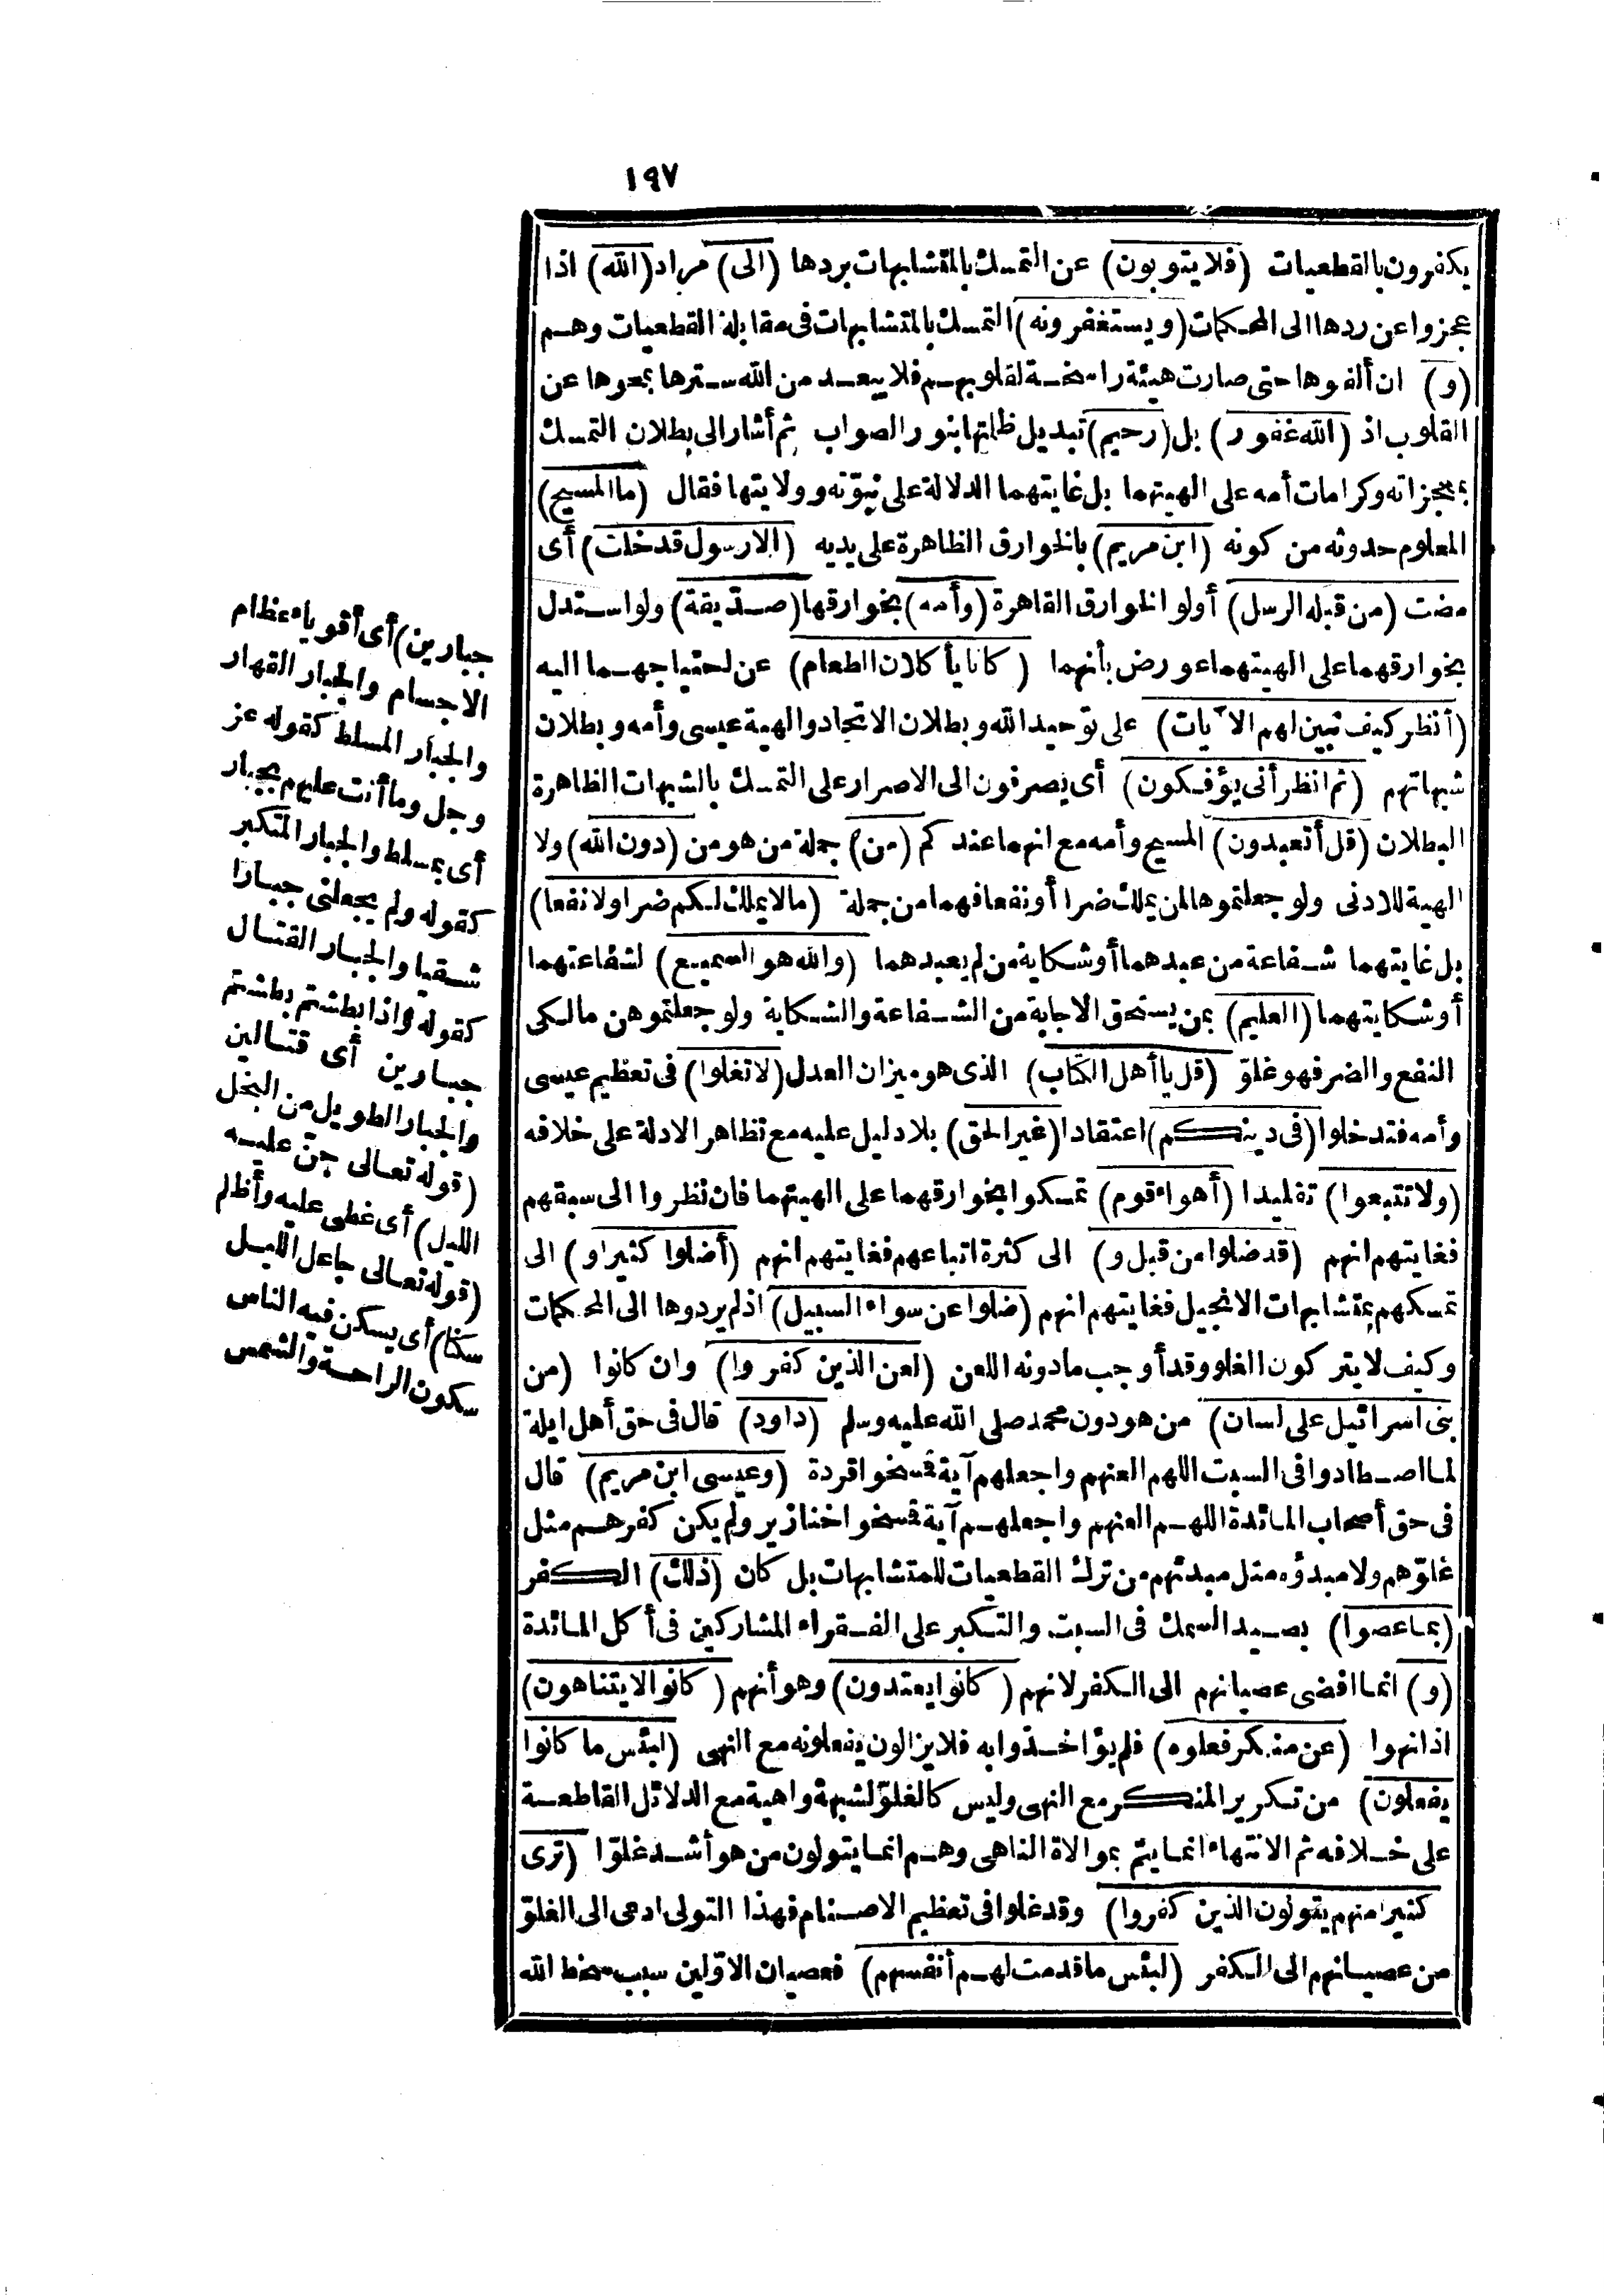 ١٩٧
يكفرون بالقطعيات (فلا يتوبون) عن التمسك بالمتشابهات بردها (الى) مراد (الله) اذا
عجزوا عن ردها الى المحكمات (ويستغفرونه) التمسك بالمتشابهات فى مقابلة القطعيات وهم
(و) ان ألفوها حتى صارت هيئة راسخة لقلوبهم فلا يبعد من الله سترها بمحوها عن
القلوب اذ (الله غفور) بل (رحيم) تبديل ظلمتها بنور الصواب ثم أشار الى بطلان التمسك
بمعجزاته وكرامات أمه على الهيتهما بل غايتهما الدلالة على نبوّته وولايتها فقال (ما المسيح)
المعلوم حدوثه من كونه (ابن مريم) بالخوارق الظاهرة على يديه (الا رسول قد خلت) أى
مضت (من قبله الرسل) أولو الخوارق القاهرة (وأمه) بخوارقها (صدّيقة) ولو استدل
بخوارقهما على الهيتهما عورض بأنهما (كانا يأكلان الطعام) عن احتياجهما اليه
(أنظر كيف نبين لهم الآيات) على توحيد الله وبطلان الاتحاد والهية عيسى وأمه وبطلان
شبهاتهم (ثم انظر أنى يؤفكون) أى يصرفون الى الاصرار على التمسك بالشبهات الظاهرة
البطلان (قل أتعبدون) المسيح وأمه مع انهما عندكم (من) جملة من هو من (دون الله) ولا
الهية للادنى ولو جعلتموها لمن يملك ضرا أو نفعا فهما من جملة (مالا يملك لكم ضرا ولا نفعا)
بل غايتهما شفاعة من عبدهما أو شكاية من لم يعبدهما (والله هو السميع) لشفاعتهما
أو شكايتهما (العليم) بمن يستحق الاجابة من الشفاعة والشكاية ولو جعلتموهن مالكى
النفع والضر فهو غلوّ (قل يا أهل الكتاب) الذى هو ميزان العدل (لا تغلوا) فى تعظيم عيسى
وأمه فتدخلوا (فى دينكم) اعتقادا (غير الحق) بلا دليل عليه مع تظاهر الادلة على خلافه
(ولا تتبعوا) تقليدا (أهواء قوم) تمسكوا بخوارقهما على الهيتهما فان نظروا الى سبقهم
فغايتهم انهم (قد ضلوا من قبل و) الى كثرة اتباعهم فغايتهم انهم (أضلوا كثيرا و) الى
تمسكهم بمتشابهات الانجيل فغايتهم انهم (ضلوا عن سواء السبيل) اذ لم يردوها الى المحكمات
وكيف لا يتركون الغلو وقد أوجب مادونه اللعن (لعن الذين كفروا) وان كانوا (من
بنى اسرائيل على لسان) من هو دون محمد صلى الله عليه وسلم (داود) قال فى حق أهل ايلة
لما اصطادوا فى السبت اللهم العنهم واجعلهم آية فمسخوا قردة (وعيسى ابن مريم) قال
فى حق أصحاب المائدة اللهم العنهم واجعلهم آية فمسخوا خنازير ولم يكن كفرهم مثل
غلوّهم ولا مبدؤه مثل مبدئهم من ترك القطعيات للمتشابهات بل كان (ذلك) الكفر
(بما عصوا) بصيد السمك فى السبت والتكبر على الفقراء المشاركين فى أكل المائدة
(و) انما افضى عصيانهم الى الكفر لانهم (كانوا يعتدون) وهو أنهم (كانوا لا يتناهون)
اذا نهوا (عن منكر فعلوه) فلم يؤاخذوا به فلا يزالون يفعلونه مع النهى (لبئس ما كانوا
يفعلون) من تكرير المنكر مع النهى وليس كالغلوّ لشبهة واهية مع الدلائل القاطعة
على خلافه ثم الانتهاء انما يتم بموالاة الناهى وهم انما يتولون من هو أشد غلوّا (ترى
كثيرا منهم يتولون الذين كفروا) وقد غلوا فى تعظيم الاصنام فهذا التولى ادعى الى الغلوّ
من عصيانهم الى الكفر (لبئس ما قدمت لهم أنفسهم) فعصيان الاوّلين سبب سخط الله
جبارين) أى أقوياء عظام
الاجسام والجبار القهار
والجبار المسلط كقوله عز
وجل وما أنت عليهم بجبار
أى بمسلط والجبار المتكبر
كقوله ولم يجعلنى جبارا
شقيا والجبار القتال
كقوله واذا بطشتم بطشتم
جبارين أى قتالين
والجبار الطويل من النخل
(قوله تعالى جنّ عليه
الليل) أى غطى عليه وأظلم
(قوله تعالى جاعل الليل
سكنا) أى يسكن فيه الناس
سكون الراحة والشمس